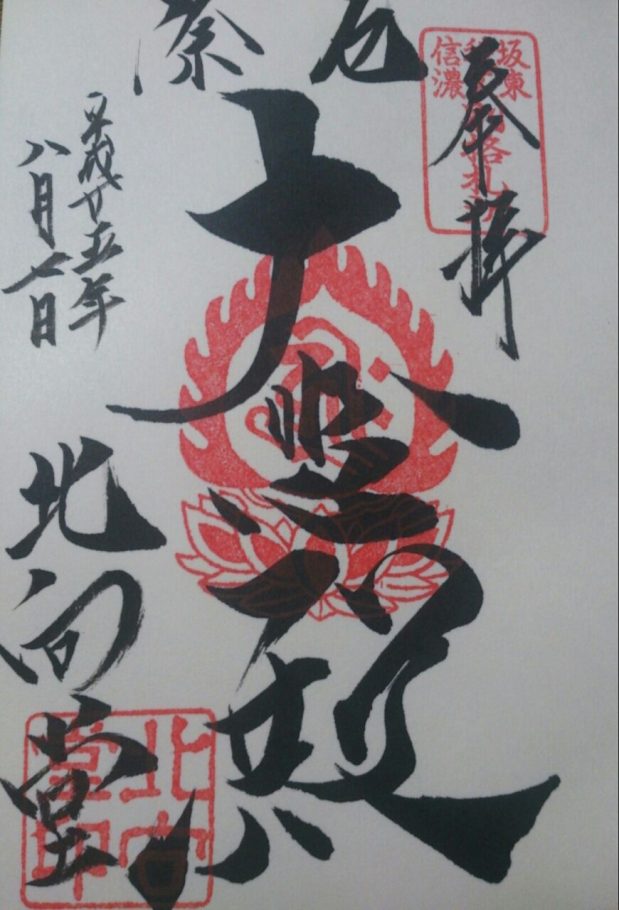 奉拝
坂東
信濃
厄除
大悲殿
平成廿五年
八月七日
北向堂
北向
堂印